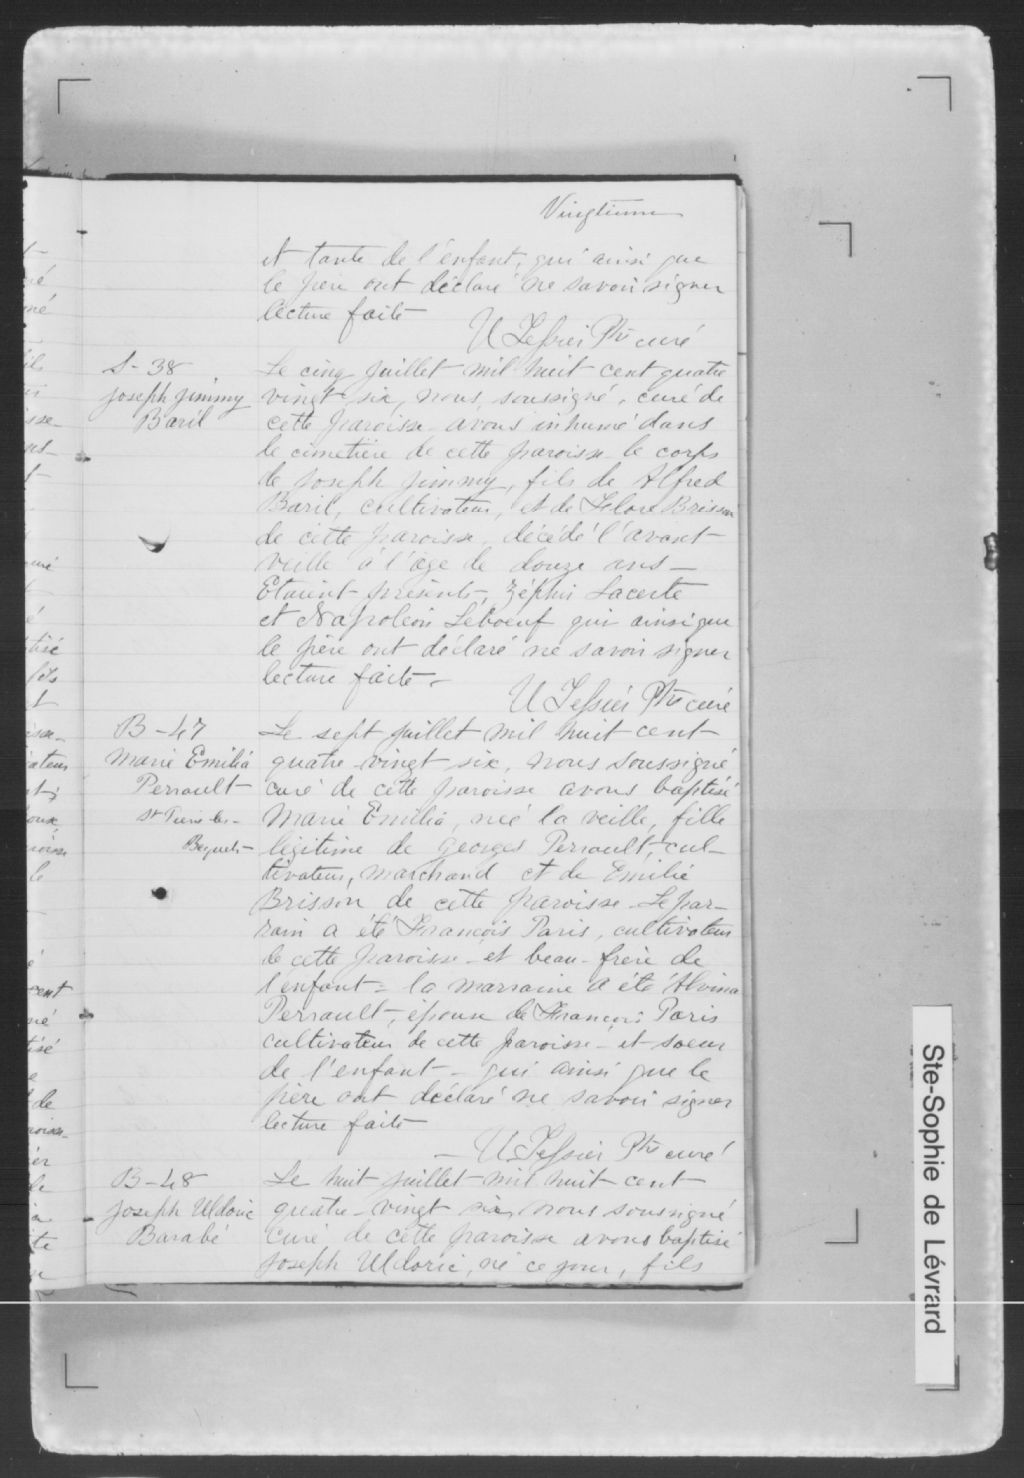 Vingtième
et tante de l'enfant, qui ainsi que
le père ont déclaré ne savoir signer
lecture faite
U Tessier Ptre curé
S-38
Joseph Jimmy
Baril
Le cinq juillet mil huit cent quatre
vingt six, nous, soussigné, curé de
cette paroisse avons inhumé dans
le cimetière de cette paroisse le corps
de Joseph Jimmy, fils de Alfred
Baril, cultivateur, et de Flore Brisson
de cette paroisse, décédé l'avant
veille à l'âge de douze ans -
Etaient présents, Zéphir Lacerte
et Napoléon Leboeuf qui ainsi que
le père ont déclaré ne savoir signer
lecture faite -
U Tessier Ptre curé
B-47
Marie Emilia
Perrault
St Pierre les-
Bequets-
Le sept juillet mil huit cent
quatre-vingt six, nous soussigné
curé de cette paroisse avons baptisé
Marie Emilia, née la veille, fille
légitime de Georges Perrault, cul-
tivateur, marchand et de Emilie
Brisson de cette paroisse - Le par-
rain a été François Paris, cultivateur
de cette paroisse et beau-frère de
l'enfant - la marraine a été Alvina
Perrault, épouse de François Paris
cultivateur de cette paroisse - et soeur
de l'enfant - qui ainsi que le
père ont déclaré ne savoir signer
lecture faite
- U Tessier Ptre curé
B-48
Joseph Uldoric
Barabé
Le huit juillet mil huit cent
quatre-vingt six, nous soussigné
curé de cette paroisse avons baptisé
Joseph Uldoric, né ce jour, fils
Ste-Sophie de Lévrard